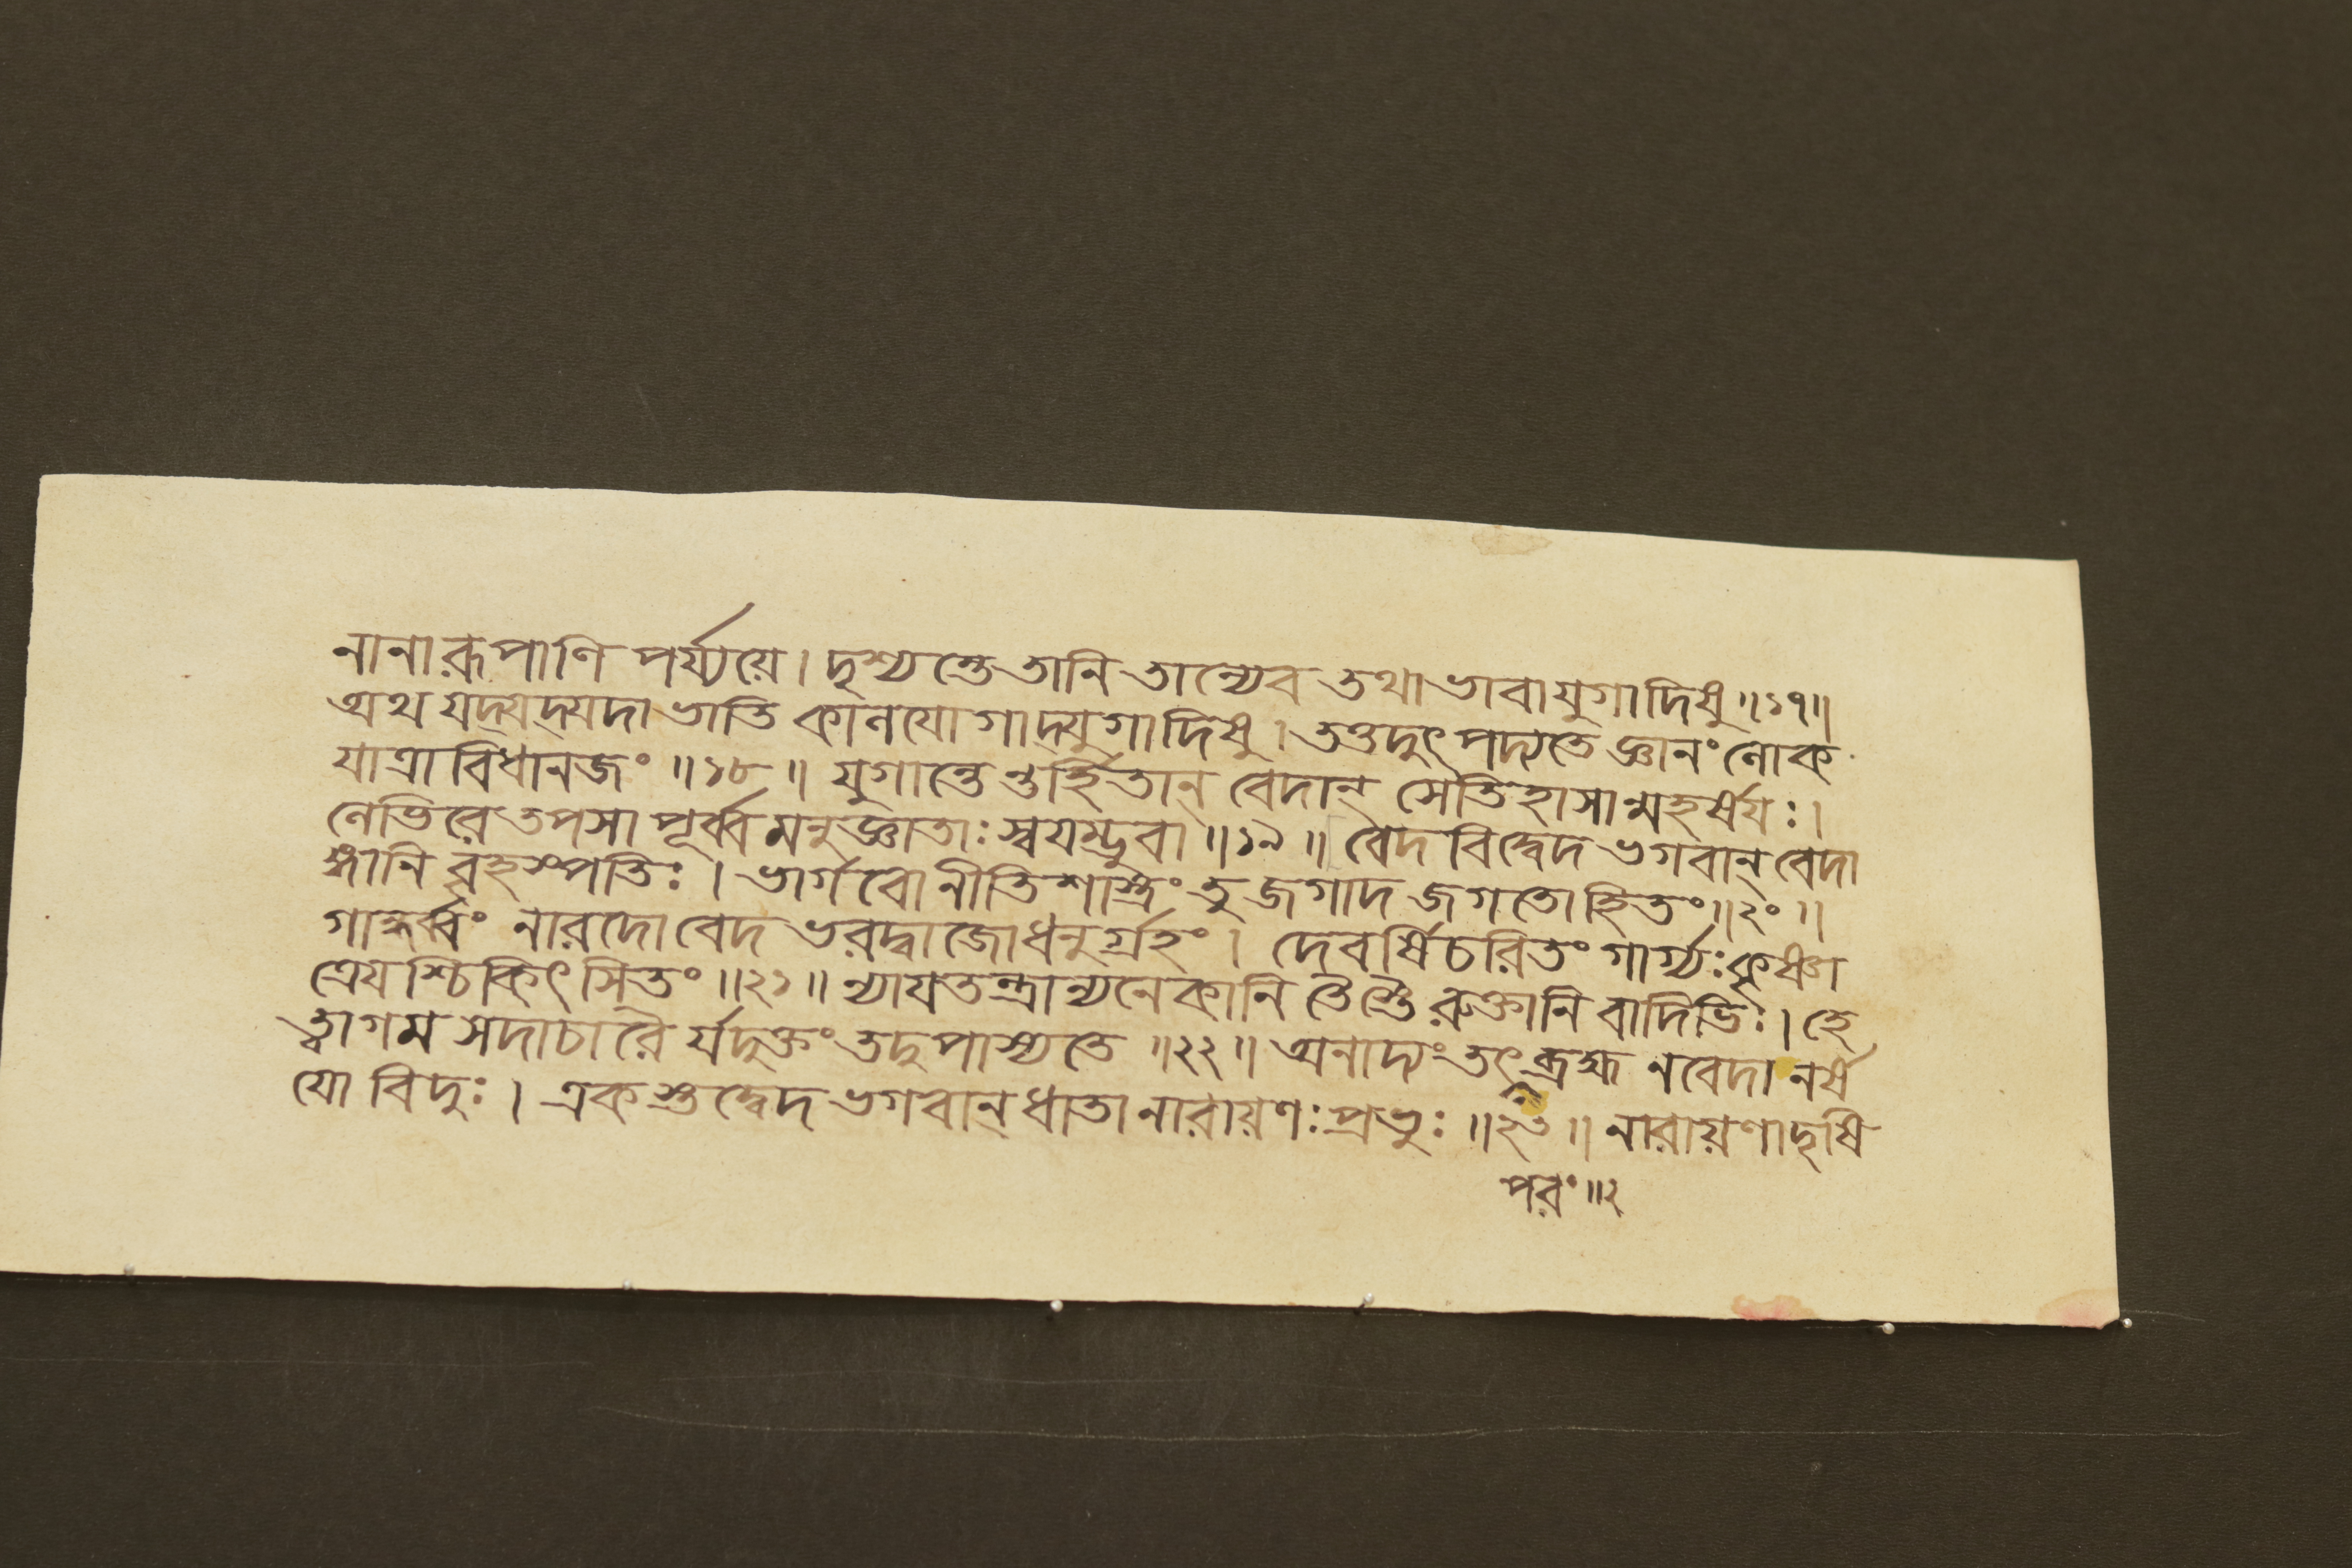 নানারূপাণি পর্য্যয়ে। দৃশ্যন্তে তানি তান্যেব তথা ভাবা যুগাদিষু॥১৭॥
অথ যদ্যদ্যদা ভাতি কালযোগাদ্যুগাদিষু। তত্তদুৎপদ্যতে জ্ঞানং লোক
যাত্রাবিধানজং॥১৮॥ যুগান্তেন্তর্হিতান্ বেদান্ সেতিহাসান্মহর্ষযঃ।
লেভিরে তপসা পূর্ব্বমনুজ্ঞাতাঃ স্বযম্ভুবা॥১৯॥ বেদবিদ্বেদ ভগবান্ বেদা
ঙ্গানি বৃহস্পতিঃ। ভার্গবো নীতিশাস্ত্রং তু জগাদ জগতো হিতং॥২০॥
গান্ধর্ব্বং নারদো বেদ ভরদ্বাজো ধনুর্গ্রহং। দেবর্ষিচরিতং গার্গ্যঃ কৃষ্ণা
ত্রেযশ্চিকিৎসিতং॥২১॥ ন্যাযতন্ত্রান্যনেকানি তৈস্তৈরুক্তানি বাদিভিঃ। হে
ত্বাগমসদাচারৈর্যদুক্তং তদুপাস্যতে॥২২॥ অনাদ্যং তৎ ব্রহ্ম ন বেদা নর্ষ
যো বিদুঃ। একস্তদ্বেদ ভগবান্ ধাতা নারায়ণঃ প্রভুঃ॥২৩॥ নারায়ণাদৃষি
পরং॥২